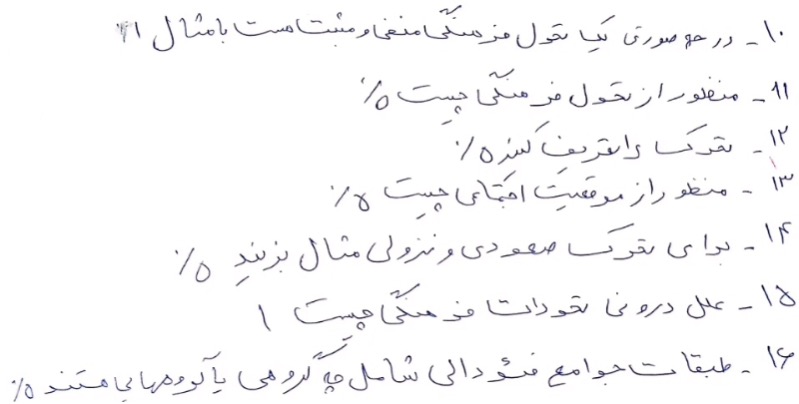 ۱۰- در چه صورتی یک تحول فرهنگی منفی و مثبت است با مثال ۱
۱۱- منظور از تحول فرهنگی چیست ۵/
۱۲- تحرک را تعریف کنید ۵/
۱۳- منظور از موقعیت اجتماعی چیست ۵/
۱۴- برای تحرک صعودی و نزولی مثال بزنید ۵/
۱۵- علل درونی تحولات فرهنگی چیست ۱
۱۶- طبقات جوامع فئودالی شامل چه گروهی یا گروههایی هستند ۵/